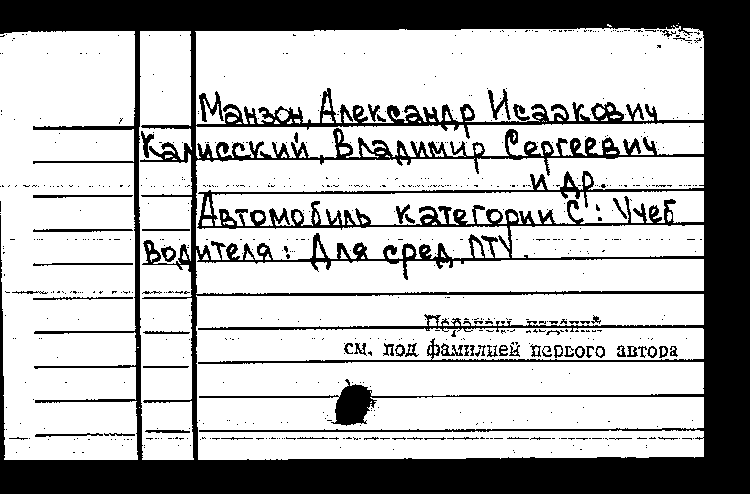 Манзон, Александр Исаакович
Калисский, Владимир Сергеевич
и др.
Автомобиль категории С: Учеб
водителя: Для сред. ПТУ.
Перечень изданий
см. под фамилией первого автора